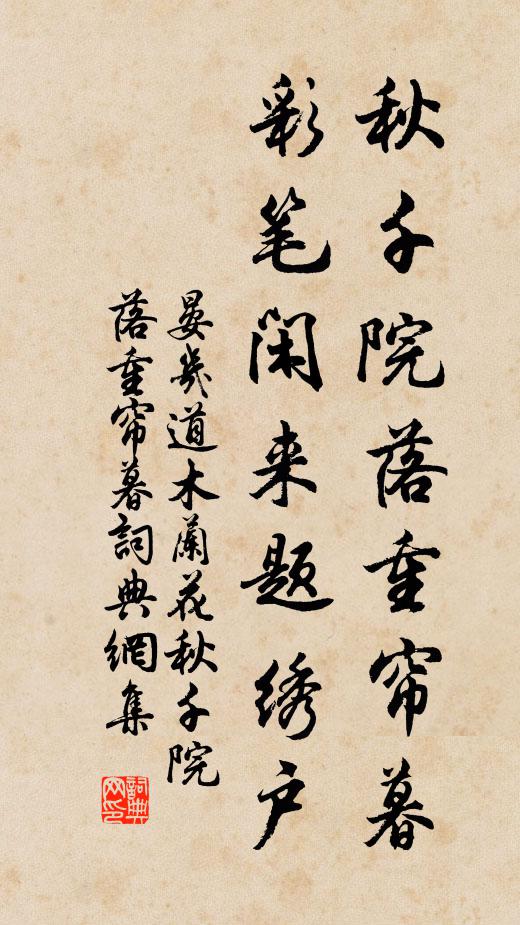 秋千院落重帘暮
彩笔闲来题绣户
晏几道木蘭花秋千院
落重帘暮詞典網集
詞典
网印